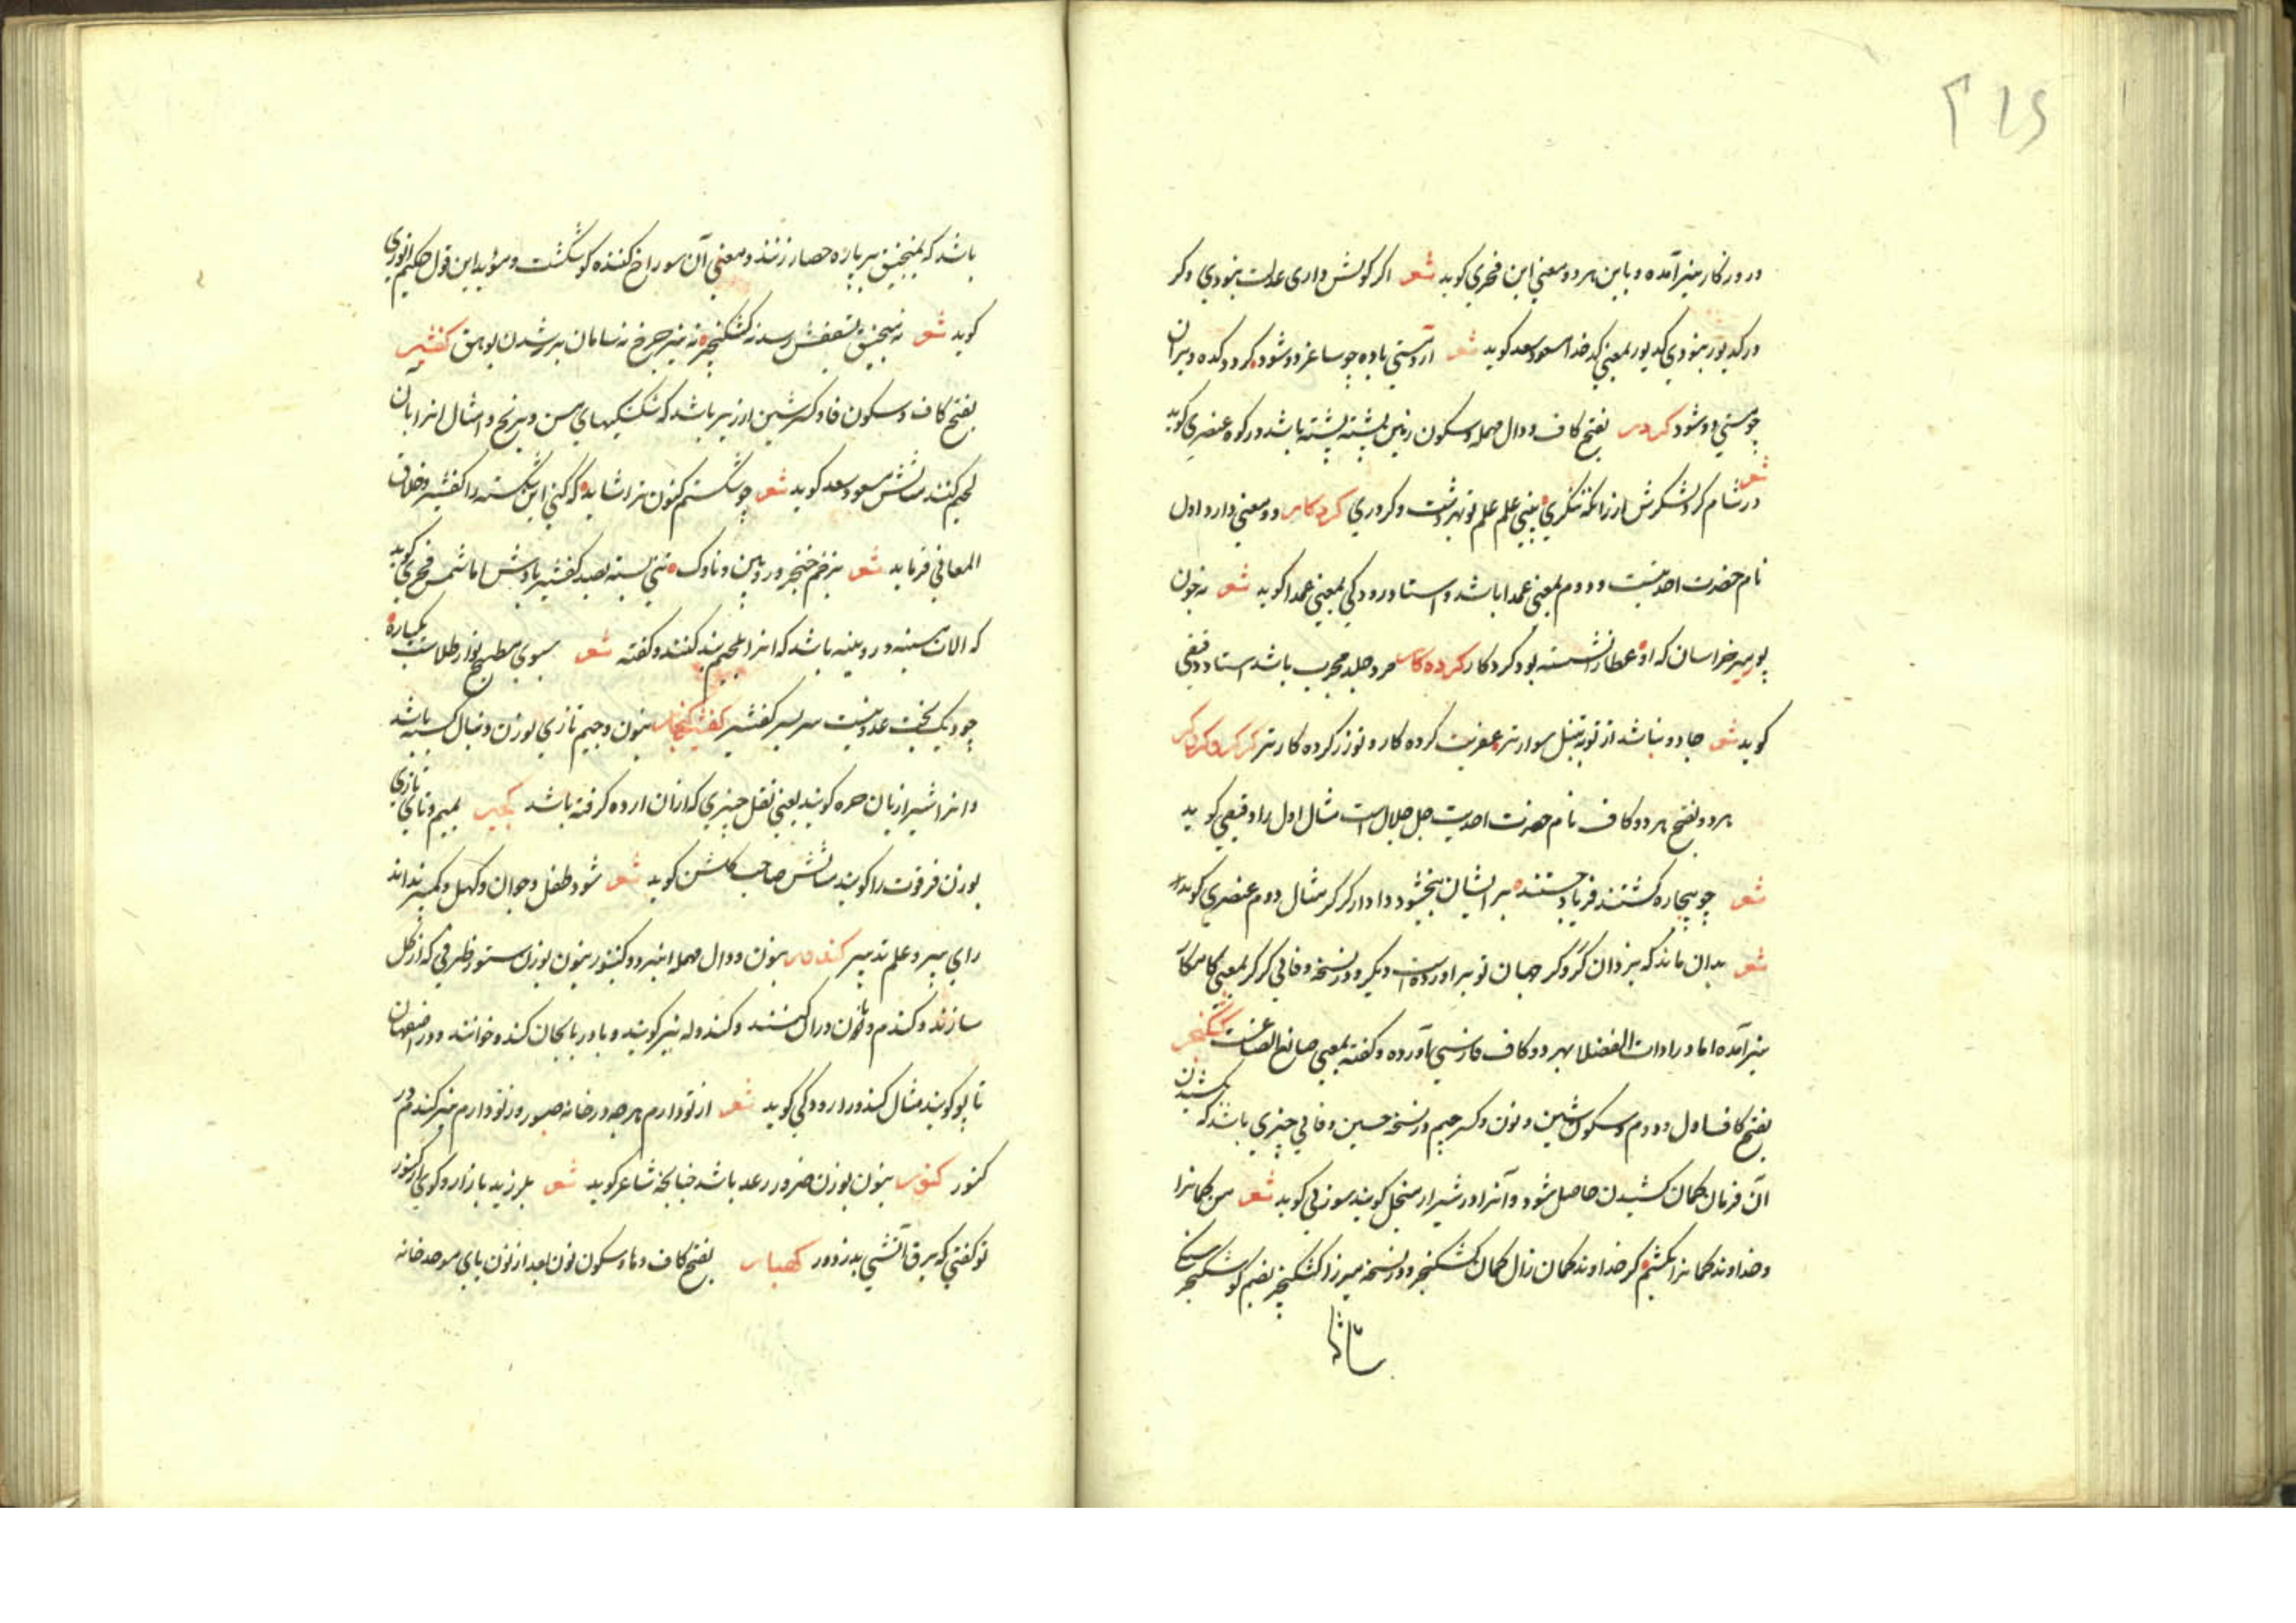 ۲۱۶
و روزکار نیز آمده و باین هر دو معنی ابن فخری کوید شعر اکر کوش داری عدلت بنودی وکر
ور کدیور بنودی کدیور بمعنی کدخدا مسعود سعد کوید شعر ار دستی باده چو ساغر دو شود کردد کده ویران
چو مستی دو شود کردر بفتح کاف و دال مهمله و سکون زمین پشته پشته باشد در کوه عنصری کوید
شعر
در شام کرد لشکرش از زانکه بنکری بینی علم علم تو بهر دشت و کردری کردکار دو معنی دارد اول
نام حضرت احدیتست و دوم بمعنی عمدا باشد و استاد رودکی بمعنی عمدا کوید شعر نه چون
پور میر خراسان که او عطا را نشسته بود کردکار کرده کار مرد جلد مجرب باشد استاد دقیقی
کوید شعر جادو نباشد از تو به تنبل سوارتر عفریت کرده کار و تو زو کرده کارتر کرکر وکروکر
هر دو بفتح هر دو کاف نام حضرت احدیت جل جلاله است مثال اول را دقیقی کوید
شعر چو بیچاره کشتند فریاد جستند بر ایشان ببخشود دادار کرکر مثال دوم عنصری کوید
شعر بدان ماند که یزدان کروکر جهان نو براورده است دیکر و در نسخه وفائی کرکر بمعنی کامکار
نیز آمده اما در ادات الفضلا بهر دو کاف فارسی آورده و کفته بمعنی صانع الصنایعست کشکنجیر
بفتح کاف اول و دوم و سکون شین و نون و کسر جیم در نسخه حسین وفائی چیزی باشد که کشیدن
آن فرمان کمان کشیدن حاصل شود و آنرا در شیراز منجل کویند سوزنی کوید شعر من کمانرا
و خداوند کمانرا بکشم کر خداوند کمان زال کمان کشکنجیر و در نسخه میرزا کشکنجیر بضم کوشکنجیر سنکی
باشد که بمنجنیق بر باره حصار زنند و معنی آن سوراخ کننده کوشکست و مؤید این قول حکیم انوری
کوید شعر نه منجنیق بسقفش رسد نه کشکنجیر نه تیر چرخ نه سامان بر شدن بوهق کفشیر
بفتح کاف و سکون فا و کسر شین ارزیر باشد که شکستکیهای مس و برنج و امثال انرا بان
لحیم کنند مثالش مسعود سعد کوید شعر چو شکستم کنون نرا شاید که کنی این شکسته را کفشیر و خلاق
المعانی فرماید شعر بزخم خنجر و زوبین و ناوک تنی بسته بصد کفشیر بادش اما شمس فخری کوید
که الات مسینه و رویینه باشد که انرا بلحیم بند کنند و کفته شعر بسوی مطبخ نواز ظلامت یکباره
چو دیک بخت عدویتست سر بسر کفشیر کفتنجار بنون و جیم تازی بوزن دنبال کسبه باشد
و انرا شیرازیان حره کویند یعنی ثفل چیزی که ازان ارده کرفته باشد کمیر بمیم و تای تازی
بوزن فرتوت را کویند مثالش صاحب کلشن کوید شعر شود طفل و جوان و کهل و کمیر نداند
رای پیر و علم تدبیر کندر بنون و دال مهمله ایضا و کنور بنون بوزن ستور ظرفی که از کل
سازند و کندم و نان دران کنند و کندوله نیز کویند و باذربایجان کندو خوانند و در اصفهان
تاپو کویند مثال کندو را رودکی کوید شعر از تو دارم هر چه در خانه خنور وز تو دارم نیز کندم در
کنور کنور بنون بوزن ضرور رعد باشد چنانچه شاعر کوید شعر بلرزید بازار و کوی از کنور
تو کفتی که برق آتشی بد ز دور کهنبار بفتح کاف و ها و سکون نون بعد از نون بای موحده خانه